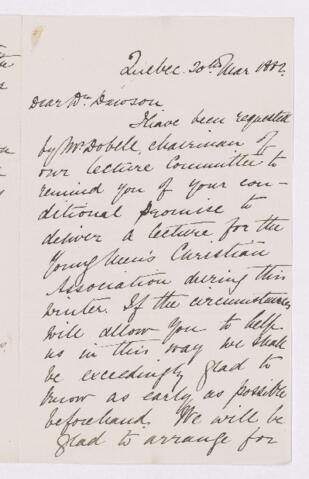 Quebec. 20th Mar 1882.
Dear Dr. Dawson.
I have been requested
by Mr Dobell, chairman of
our Lecture Committee to
remind you of your con-
ditional promise to
deliver a lecture for the
Young Men's Christian
Association during this
winter. If the circumstances
will allow you to help
us in this way we shall
be exceedingly glad to
know as early as possible
beforehand. We will be
glad to arrange for